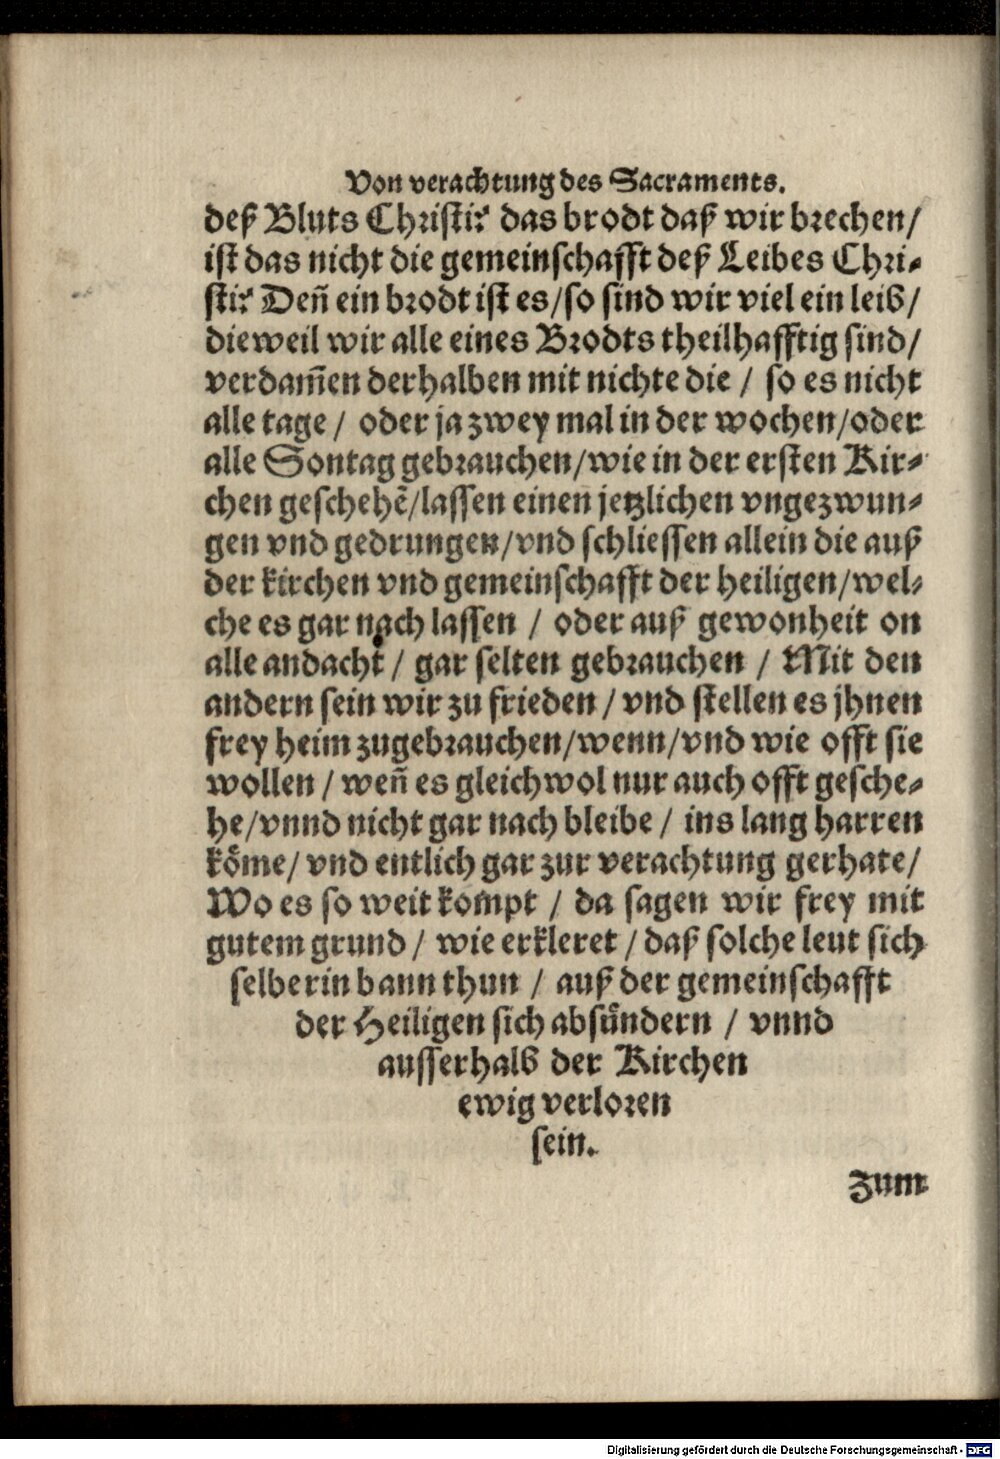 Von verachtung des Sacraments.
deß Bluts Christi? das brodt daß wir brechen/
ist das nicht die gemeinschafft deß Leibes Chri-
sti? Deñ ein brodt ist es/so sind wir viel ein leib/
dieweil wir alle eines Brodts theilhafftig sind/
verdam̃en derhalben mit nichte die / so es nicht
alle tage / oder ja zwey mal in der wochen/oder
alle Sontag gebrauchen/wie in der ersten Kir-
chen geschehẽ/lassen einen jetzlichen vngezwun-
gen vnd gedrungen/vnd schliessen allein die auß
der kirchen vnd gemeinschafft der heiligen/wel-
che es gar nach lassen / oder auß gewonheit on
alle andacht / gar selten gebrauchen / Mit den
andern sein wir zu frieden / vnd stellen es jhnen
frey heim zugebrauchen/wenn/vnd wie offt sie
wollen / weñ es gleichwol nur auch offt gesche-
he/vnnd nicht gar nach bleibe / ins lang harren
köme/ vnd entlich gar zur verachtung gerhate/
Wo es so weit kompt / da sagen wir frey mit
gutem grund / wie erkleret / daß solche leut sich
selber in bann thun / auß der gemeinschafft
der Heiligen sich absündern / vnnd
ausserhalb der Kirchen
ewig verloren
sein.
Zum
Digitalisierung gefördert durch die Deutsche Forschungsgemeinschaft - DFG